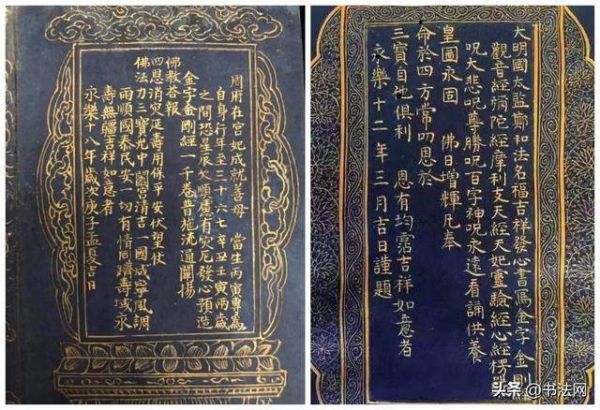 周府在宮妃成就善母 當生丙寅專為
自身行年至三十六七年丑壬寅兩歲
之間恐星辰欠順慮有灾厄發心預造
金字金剛經一千卷普施流通闡揚
佛教荅報
四恩消灾延壽用保平安伏望仗
佛法力三寶光中闔宮清吉一國咸寧風調
雨順國泰民安一切有情同躋壽域永
壽無疆吉祥如意者
永樂十八年歲次庚子孟夏吉日
大明國太監鄭和法名福吉祥發心書寫金字金剛
觀音經彌陀經摩利支天經天妃靈驗經心經楞
呪大悲呪尊勝呪百字神呪永遠看誦供養
皇圖永固 佛日增輝凡奉
命於四方常叨恩於
三寶自他俱利 恩有均霑吉祥如意者
永樂十二年三月吉日謹題
头条 @书法网